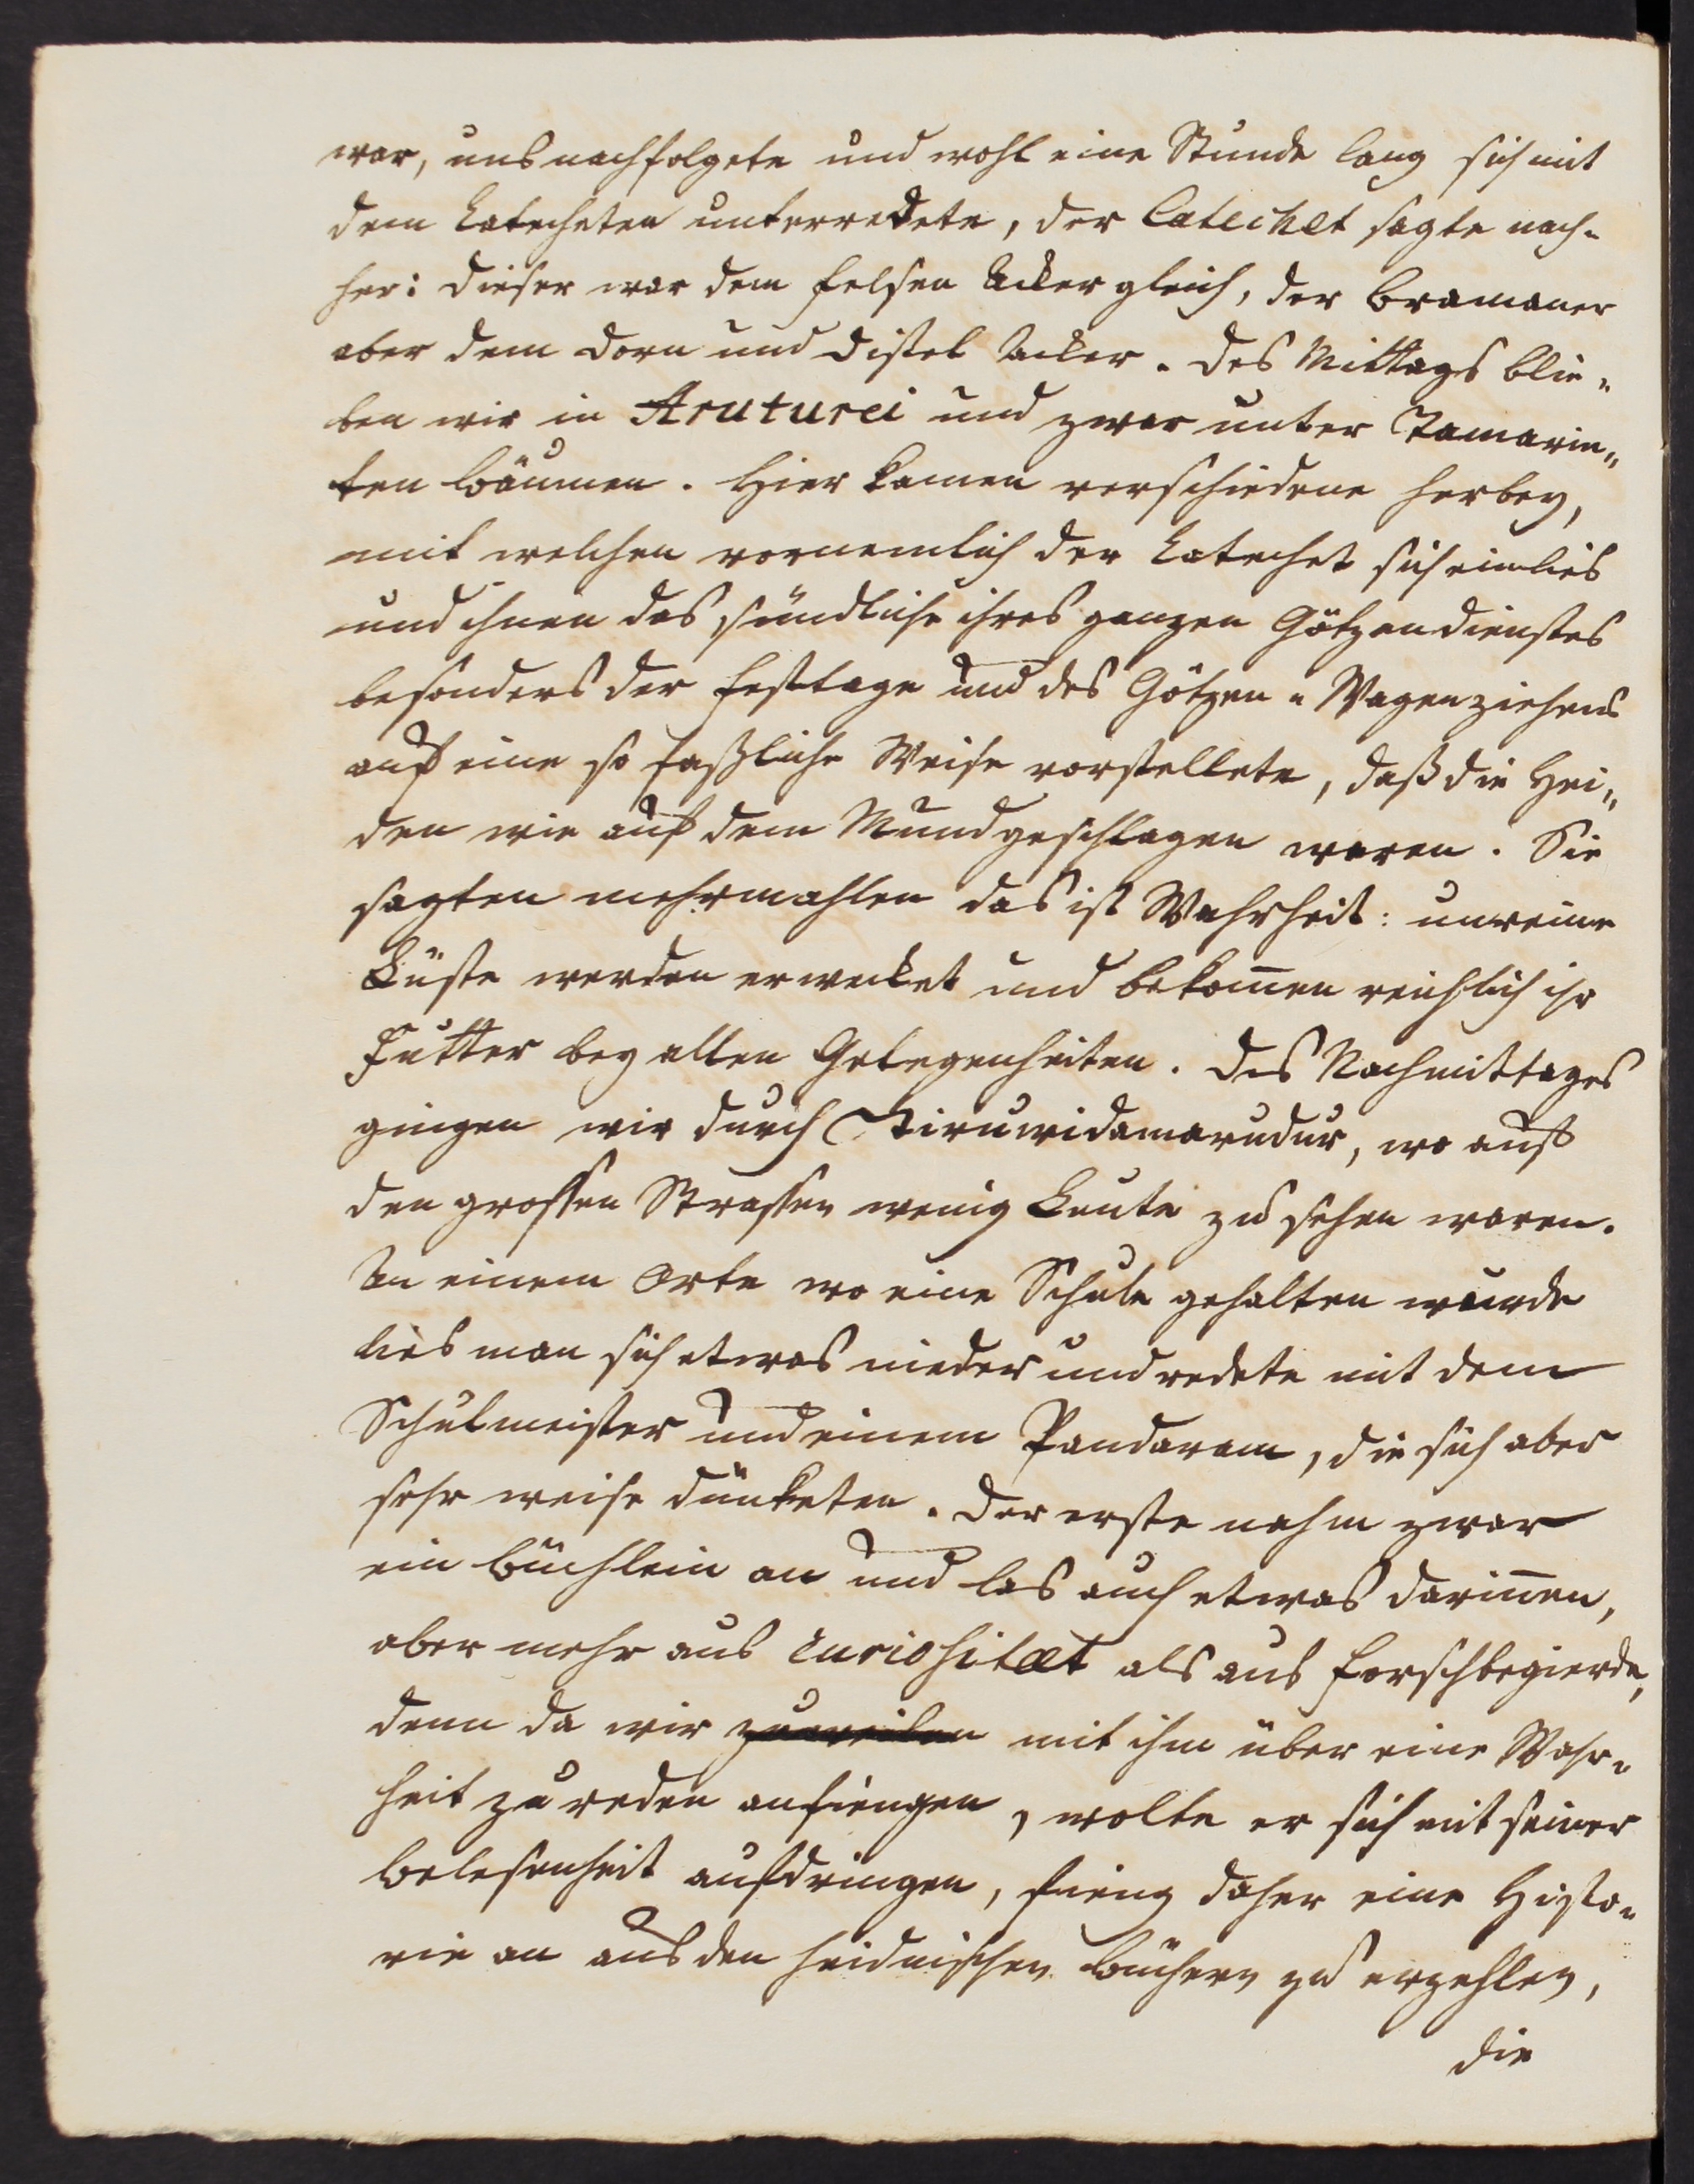 war, uns nachfolgete und wohl eine Stunde lang sich mit
dem Catecheten unterredete, der Catechet sagte nach-
her: dieser war dem felsen Acker gleich, der Bramaner
aber dem Dorn und Distel Acker. Des Mittags blie-
ben wir in Aruturei und zwar unter Tamarin-
ten Bäumen. Hier kamen verschiedene herbey,
mit welchen vornemlich der Catechet sich einlies
und ihnen das sündliche ihres ganzen Götzendienstes
besonders der Festtage und des Götzen-Wagenziehens
auf eine so faßliche Weise vorstellete, daß die Hei-
den wie auf dem Mund geschlagen waren. Sie
sagten mehrmahlen das ist Wahrheit: unreine
Lüste werden erwecket und bekom̄en reichlich ihr
Futter bey allen Gelegenheiten. Des Nachmittages
gingen wir durch Tiruwidamarudur, wo auf
den grossen Strassen wenig Leute zu sehen waren.
An einem Orte wo eine Schule gehalten wurde
lies man sich etwas nieder und redete mit dem
Schulmeister und einem Pandaram, die sich aber
sehr weise dünketen. Der erste nahm zwar
ein Büchlein an und las auch etwas darin̄en,
aber mehr aus Curiositæt als aus Forschbegierde,
denn da wir zuweilen mit ihm über eine Wahr-
heit zu reden anfiengen, wolte er sich mit seiner
Belesenheit aufdringen, fieng daher eine Histo-
rie an aus den heidnischen Büchern zu erzehlen,
die